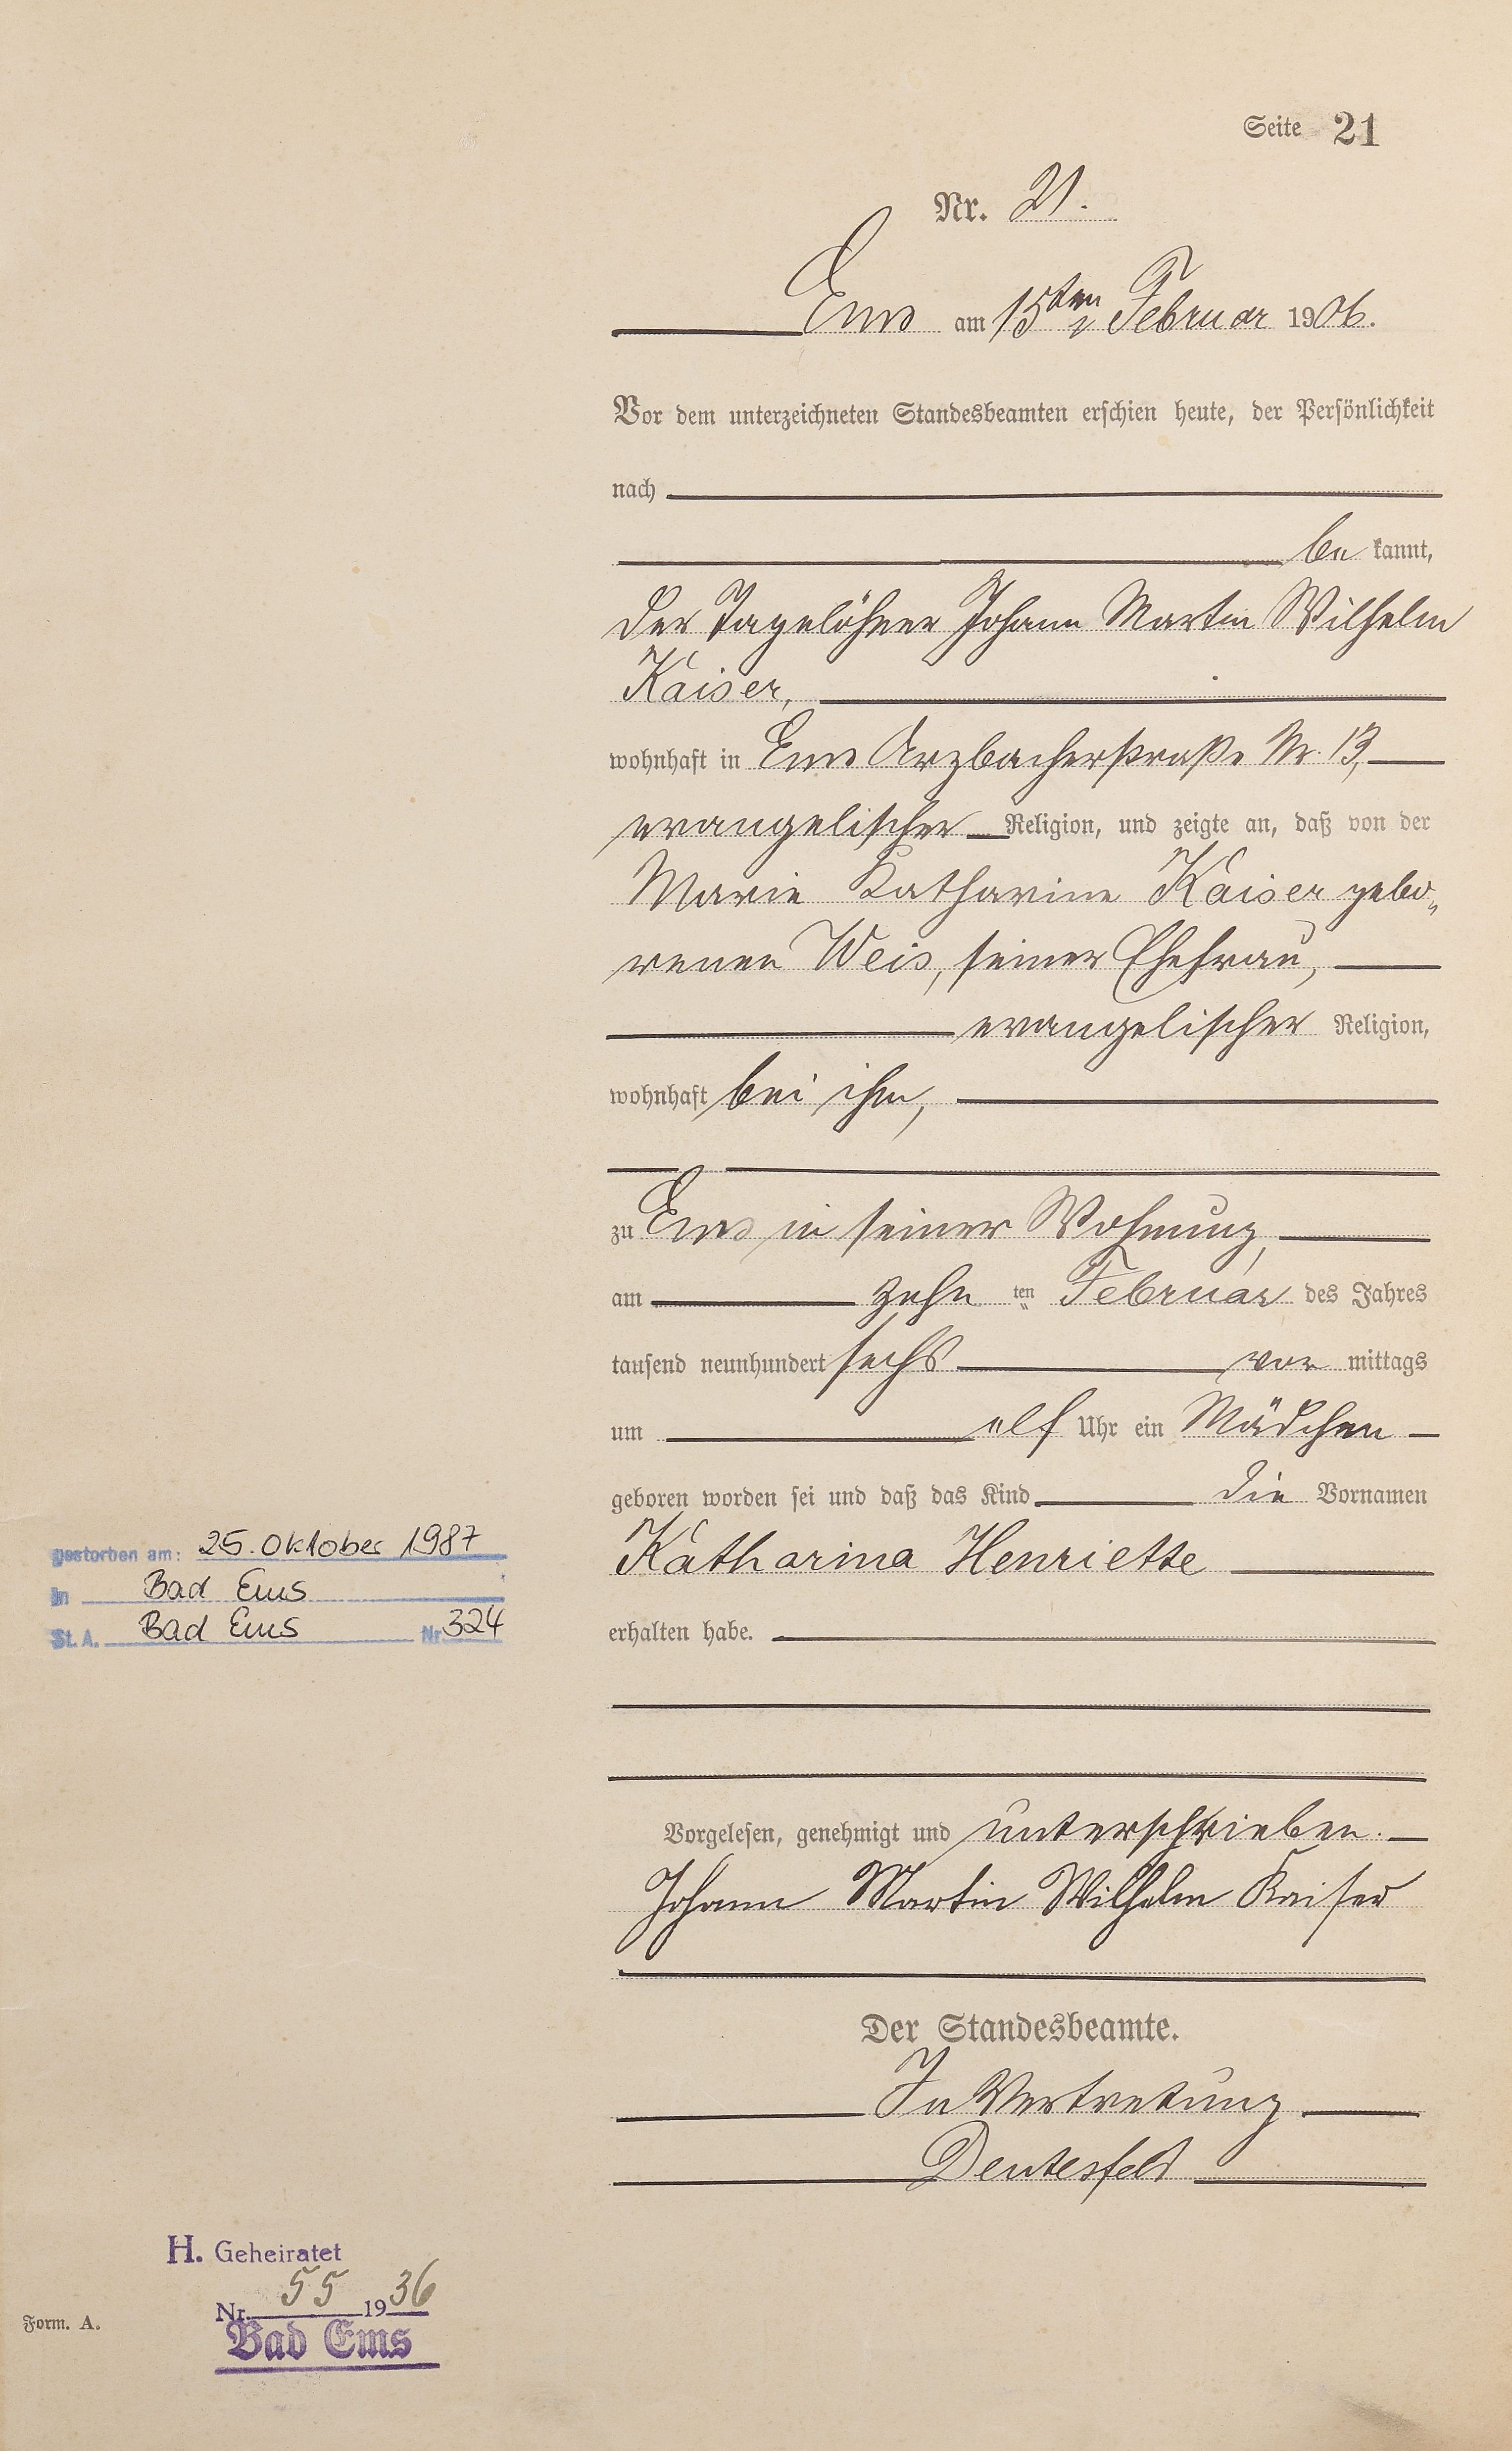 Seite 21
Nr. 21.
Ems am 15ten Februar 1906.
Vor dem unterzeichneten Standesbeamten erschien heute, der Persönlichkeit
nach
be kannt,
der Tagelöhner Johann Martin Wilhelm
Kaiser,
wohnhaft in Ems Arzbacherstraße Nr. 13,
evangelischer Religion, und zeigte an, daß von der
Marie Katharine Kaiser gebo„
renen Weis, seiner Ehefrau,
evangelischer Religion,
wohnhaft bei ihm,
zu Ems in seiner Wohnung,
am zehn ten Februar des Jahres
tausend neunhundert sechs vor mittags
um elf Uhr ein Mädchen
geboren worden sei und daß das Kind die Vornamen
Katharina Henriette
erhalten habe.
Vorgelesen, genehmigt und unterschrieben.
Johann Martin Wilhelm Kaiser
Der Standesbeamte.
In Vertretung
Deutesfeld
gestorben am: 25. Oktober 1987
in Bad Ems
St. A. Bad Ems Nr 324
H. Geheiratet
Nr. 55 1936
Bad Ems
Form. A.